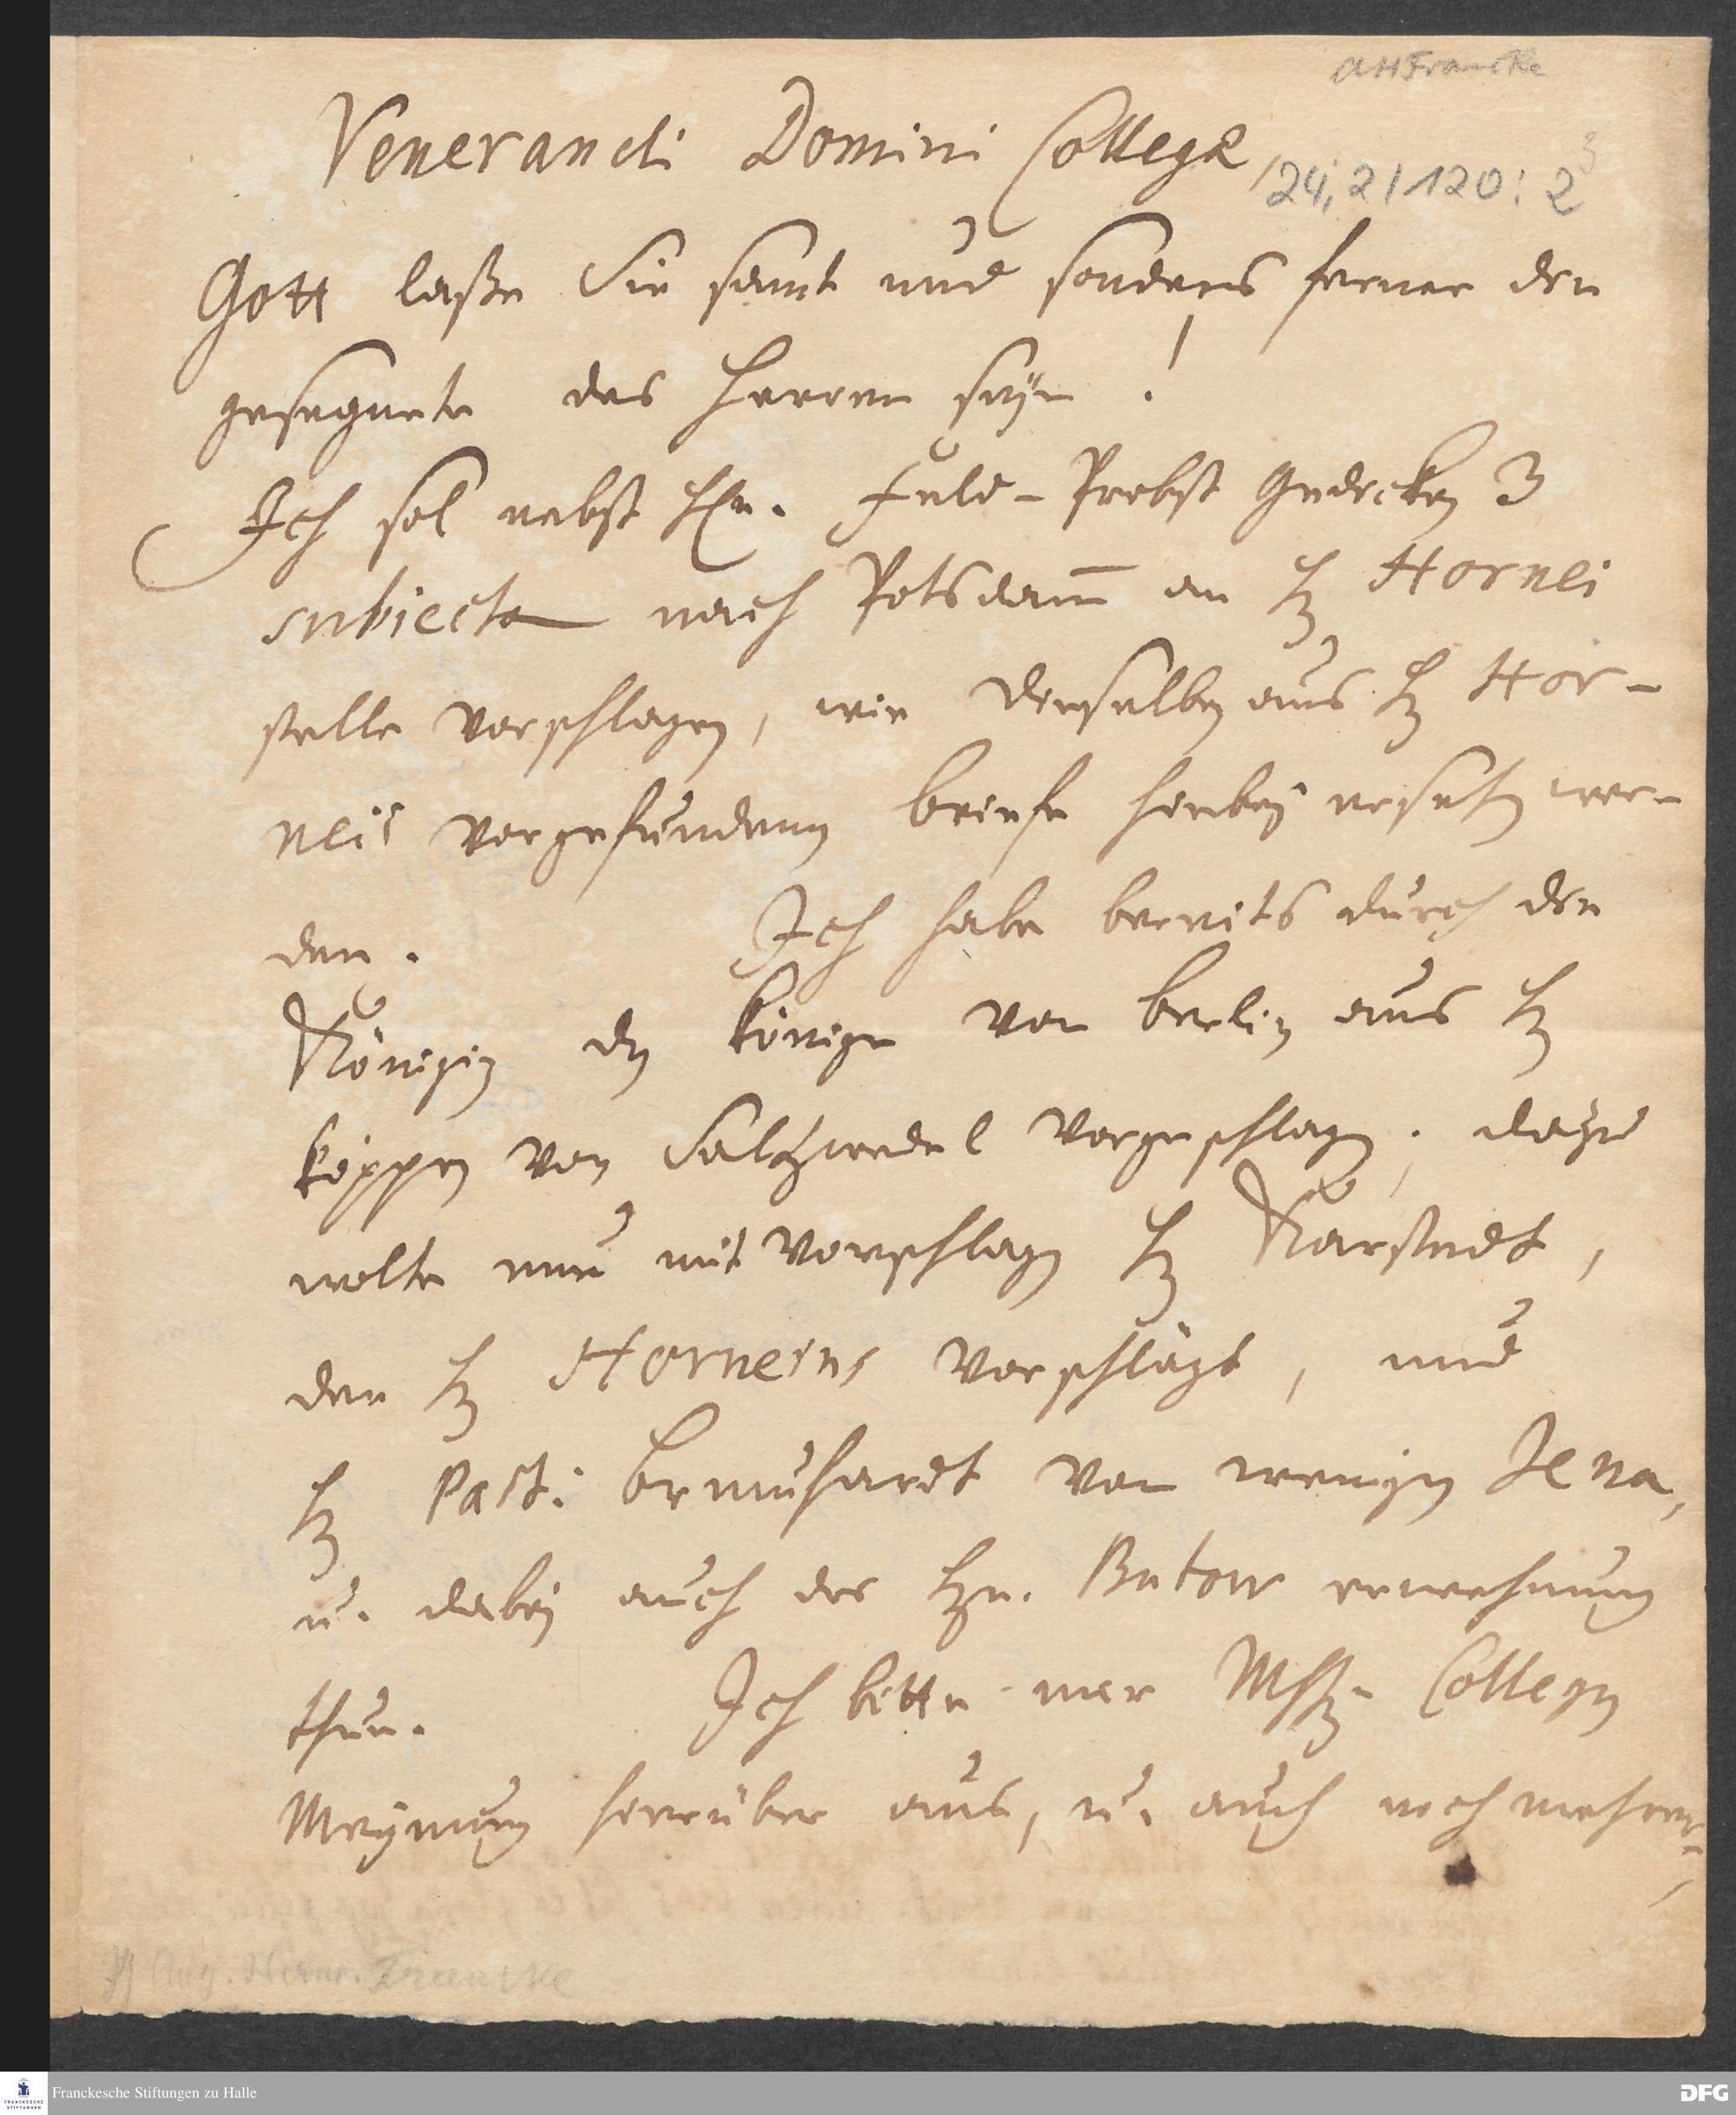 AHFrancke
Venerandi Domini Collegæ,
24,2/120:2
3
Gott laße Sie samt und sonders ferner den
gesegnete des Herren seyn!
Ich sol nebst Hn. Feld-Probst Gedicken 3
subiecta nach Potsdam̄ an H. Hornei
stelle vorschlagen, wie dieselben aus H. Hor-
neii vorgefundenen briefe hierbey ersehen wer-
den. Ich habe bereits durch den
König von Berlin aus H.
Köppen von Saltzwedel vorgeschlagen; dazu
wolte nun mit vorschlagen H. Karstedt,
den H. Horneius vorschlägt, und
H. Past: von wenigen Jena,
u. dabey auch des Hn. Butow erwehnung
thun. Ich bitte mir MhH. Collegen
Meynung hierüber aus, u. auch noch mehrer,
Aug. Herm. Francke
Franckesche Stiftungen zu Halle
FRANCKESCHE
STIFTUNGEN
DFG